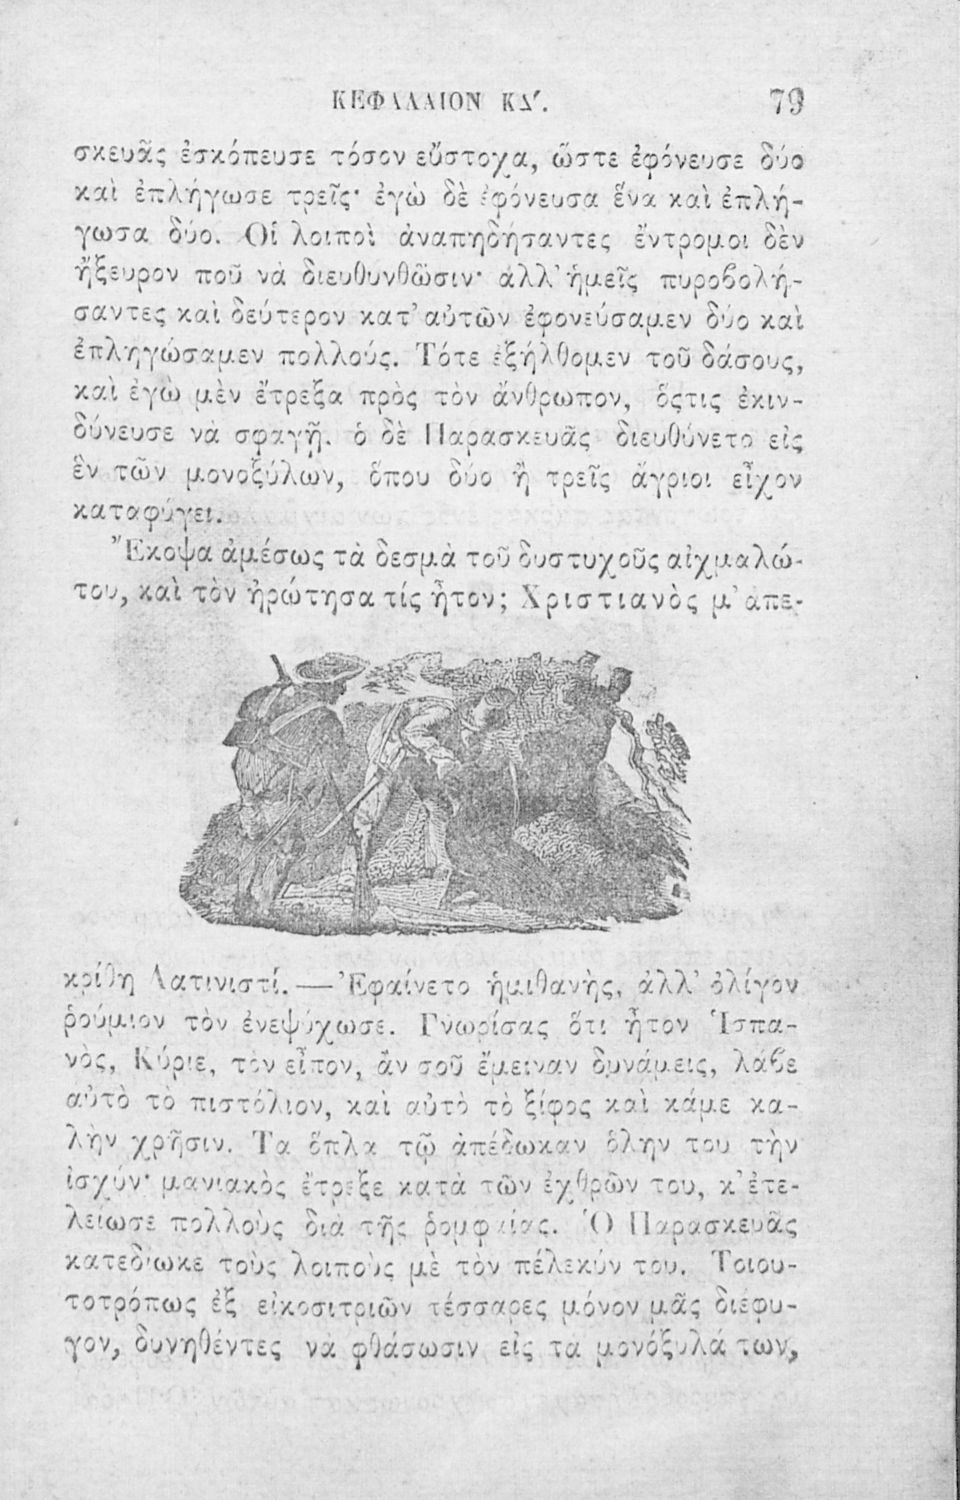 ΚΕΦΑΛΑΙΟΝ ΚΔ'. 79
σκευᾶς ἐσκόπευσε τόσον εὔστοχα, ὥστε ἐφόνευσε δύο
καὶ ἐπλήγωσε τρεῖς· ἐγὼ δὲ ἐφόνευσα ἕνα καὶ ἐπλή-
γωσα δύο. Οἱ λοιποὶ ἀναπηδήσαντες ἔντρομοι δὲν
ἤξευρον ποῦ νὰ διευθυνθῶσιν· ἀλλ' ἡμεῖς πυροβολή-
σαντες καὶ δεύτερον κατ' αὐτῶν ἐφονεύσαμεν δύο καὶ
ἐπληγώσαμεν πολλούς. Τότε ἐξήλθομεν τοῦ δάσους,
καὶ ἐγὼ μὲν ἔτρεξα πρὸς τὸν ἄνθρωπον, ὅςτις ἐκιν-
δύνευσε νὰ σφαγῇ. ὁ δὲ Παρασκευᾶς διευθύνετο εἰς
ἓν τῶν μονοξύλων, ὅπου δύο ἢ τρεῖς ἄγριοι εἶχον
καταφύγει.
Ἔκοψα ἀμέσως τὰ δεσμὰ τοῦ δυστυχοῦς αἰχμαλώ-
του, καὶ τὸν ἠρώτησα τίς ἦτον; Χριστιανὸς μ' ἀπε-
κρίθη Λατινιστί. — Ἐφαίνετο ἡμιθανὴς, ἀλλ' ὀλίγον
ῥούμιον τὸν ἐνεψύχωσε. Γνωρίσας ὅτι ἦτον Ἱσπα-
νὸς, Κύριε, τὸν εἶπον, ἂν σοῦ ἔμειναν δυνάμεις, λάβε
αὐτὸ τὸ πιστόλιον, καὶ αὐτὸ τὸ ξίφος καὶ κάμε κα-
λὴν χρῆσιν. Τὰ ὅπλα τῷ ἀπέδωκαν ὅλην του τὴν
ἰσχύν· μανιακὸς ἔτρεξε κατὰ τῶν ἐχθρῶν του, κ' ἐτε-
λείωσε πολλοὺς διὰ τῆς ῥομφαίας. Ὁ Παρασκευᾶς
κατεδίωκε τοὺς λοιποὺς μὲ τὸν πέλεκύν του. Τοιου-
τοτρόπως ἐξ εἰκοσιτριῶν τέσσαρες μόνον μᾶς διέφυ-
γον, δυνηθέντες νὰ φθάσωσιν εἰς τὰ μονόξυλά των,